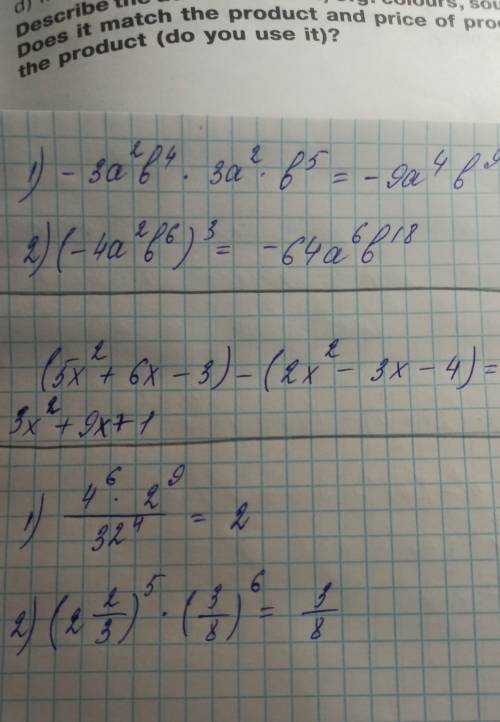 d)
Describe the
Does it match the product and price of
the product (do you use it)?
1) -3a²b⁴ · 3a² · b⁵ = -9a⁴b⁹
2) (-4a²b⁶)³ = -64a⁶b¹⁸
(5x² + 6x - 3) - (2x² - 3x - 4) =
3x² + 9x + 1
1) \frac{4⁶ · 2⁹}{32⁴} = 2
2) (2\frac{2}{3})⁵ · (\frac{3}{8})⁶ = \frac{3}{8}